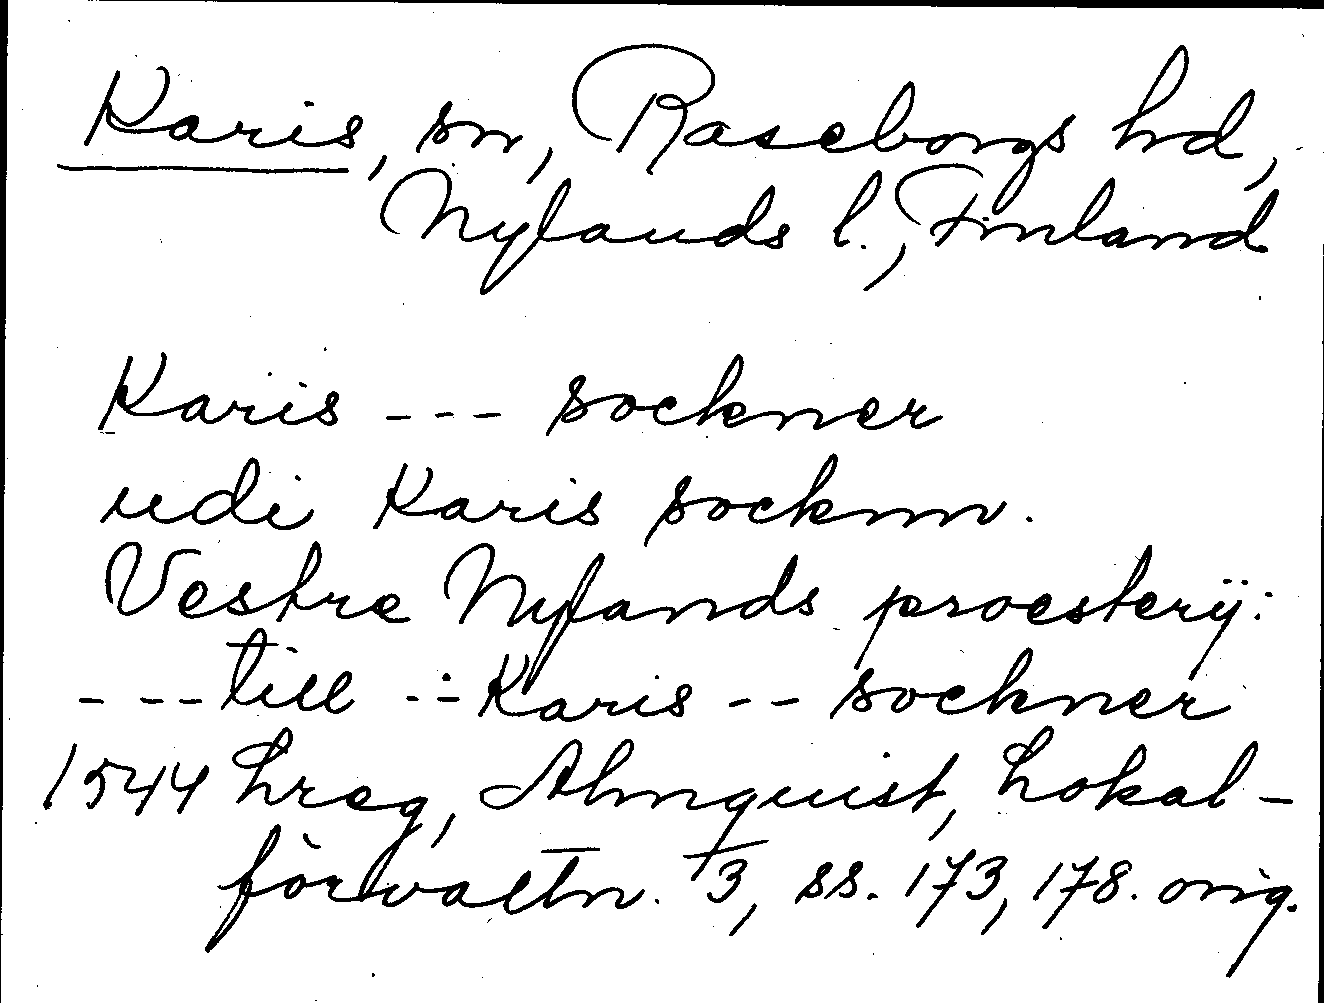 Karis, sn, Raseborgs hd,
Nylands l., Finland
Karis --- sockner
udi Karis socknn.
Vestre Nylands proesterij:
--- till -- Karis -- sockner
1544 hreg, Almquist, Lokal-
förvaltn. 13, ss. 173, 178. orig.